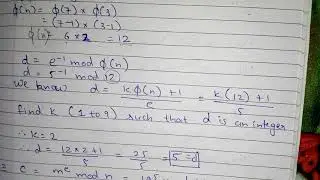 ϕ(n) = ϕ(7) × ϕ(3)
= (7-1) × (3-1)
ϕ(n) 6 × 2 = 12
d = e⁻¹ mod ϕ(n)
d = 5⁻¹ mod 12
We know d = kϕ(n) + 1 / e = k(12) + 1 / 5
find k (1 to 9) such that d is an integer
∴ k = 2
∴ d = 12 × 2 + 1 / 5 = 25 / 5 = 5 = d
c = mᵉ mod n